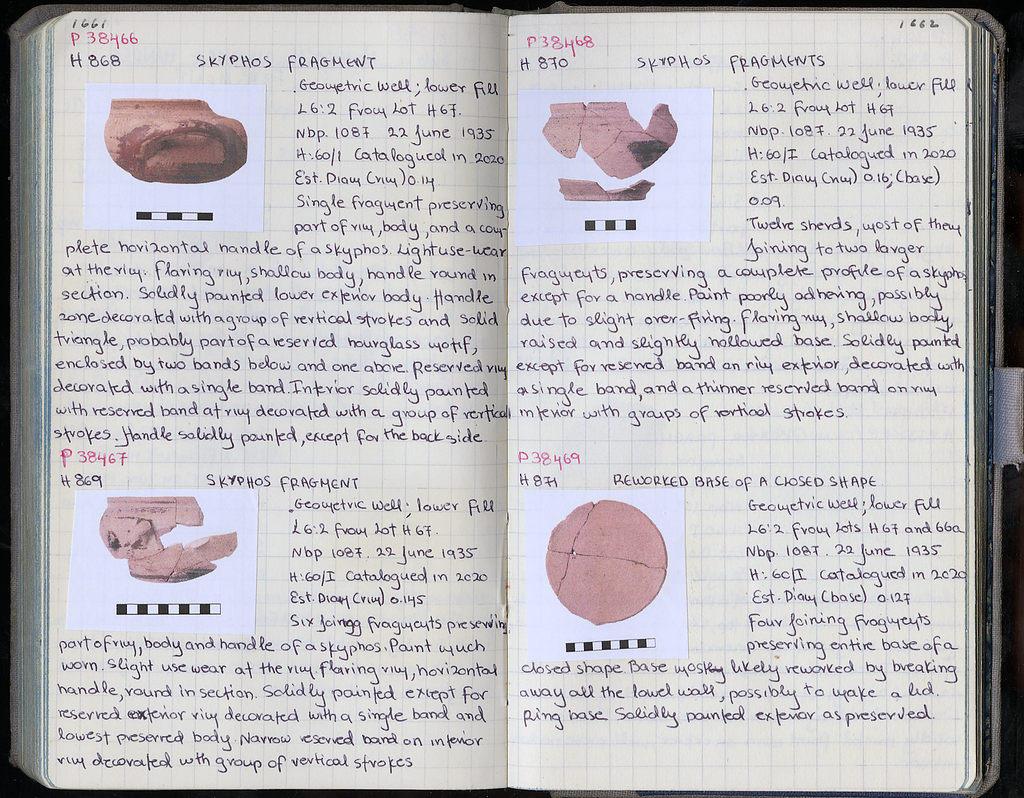 1661
P 38466
H 868 SKYPHOS FRAGMENT
Geometric well; lower fill
L6:2 From Lot H67.
Nbp. 1087. 22 June 1935
H:60/I Catalogued in 2020
Est. Diam (rim) 0.14
Single fragment preserving
part of rim, body, and a com-
plete horizontal handle of a skyphos. Light use-wear
at the rim. Flaring rim, shallow body, handle round in
section. Solidly painted lower exterior body. Handle
zone decorated with a group of vertical strokes and solid
triangle, probably part of a reserved hourglass motif,
enclosed by two bands below and one above. Reserved rim
decorated with a single band. Interior solidly painted
with reserved band at rim decorated with a group of vertical
strokes. Handle solidly painted, except for the back side.
P 38467
H 869 SKYPHOS FRAGMENT
Geometric well; lower fill
L6:2 From Lot H67.
Nbp 1087. 22 June 1935
H:60/I Catalogued in 2020
Est. Diam (rim) 0.145
Six joining fragments preserving
part of rim, body and handle of a skyphos. Paint much
worn. Slight use wear at the rim flaring rim, horizontal
handle, round in section. Solidly painted except for
reserved exterior rim decorated with a single band and
lowest preserved body. Narrow reserved band on interior
rim decorated with group of vertical strokes
1662
P 38468
H 870 SKYPHOS FRAGMENTS
Geometric well; lower fill
L6:2 From Lot H67
Nbp. 1087. 22 June 1935
H:60/I Catalogued in 2020
Est. Diam (rim) 0.16; (base)
0.09.
Twelve sherds, most of them
joining to two larger
fragments, preserving a complete profile of a skyphos
except for a handle. Paint poorly adhering, possibly
due to slight over-firing. Flaring rim, shallow body,
raised and slightly hollowed base. Solidly painted
except for reserved band on rim exterior, decorated with
a single band, and a thinner reserved band on rim
interior with groups of vertical strokes.
P 38469
H 871 REWORKED BASE OF A CLOSED SHAPE
Geometric well; lower fill
L6:2 From Lots H67 and 66a
Nbp. 1087. 22 June 1935
H: 60/I Catalogued in 2020
Est. Diam (base) 0.127
Four joining fragments
preserving entire base of a
closed shape. Base mostly likely reworked by breaking
away all the lower wall, possibly to make a lid.
Ring base. Solidly painted exterior as preserved.